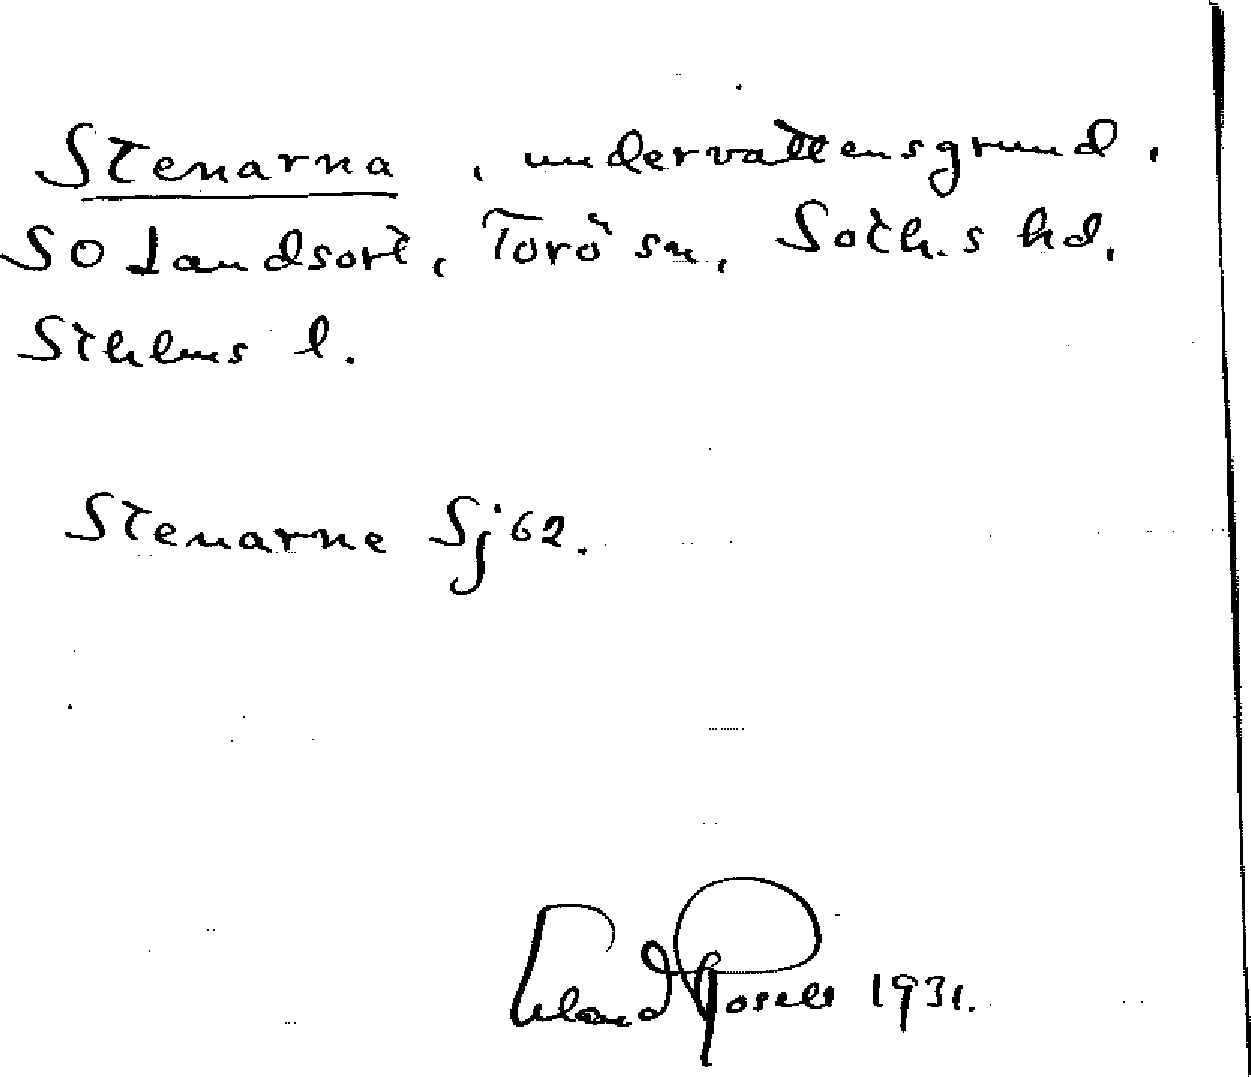 Stenarna, undervattensgrund,
SO Landsort, Torö sn, Soth.s hd,
Sthlms l.
Stenarne Sj 62.
Erland Rosell 1931.